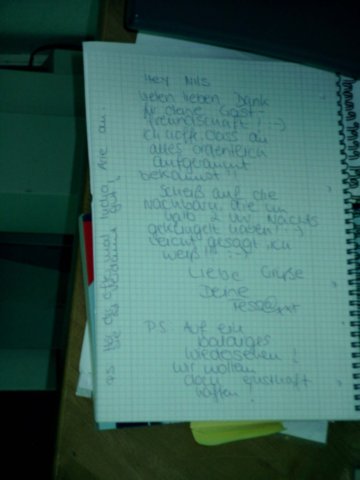 Hey Nils
vielen lieben Dank
für deine Gast-
freundschaft! :-)
ich hoff, dass du
alles ordentlich
aufgeräumt
bekommst!!
Scheiß auf die
Nachbarn, die um
halb 2 Uhr Nachts
geklingelt haben! :-)
leicht gesagt ich
weiß!!! :-)
Liebe Grüße
Deine
PS Auf ein
baldiges
wiedersehen!
wir wollen
doch
hoffen!